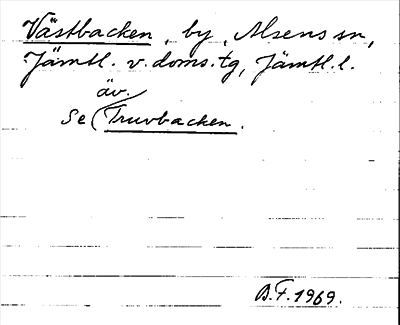 Västbacken, by, Alsens sn,
Jämtl. v. doms. tg, Jämtl. l.
äv.
Se (Truvbacken.
B.F. 1969.